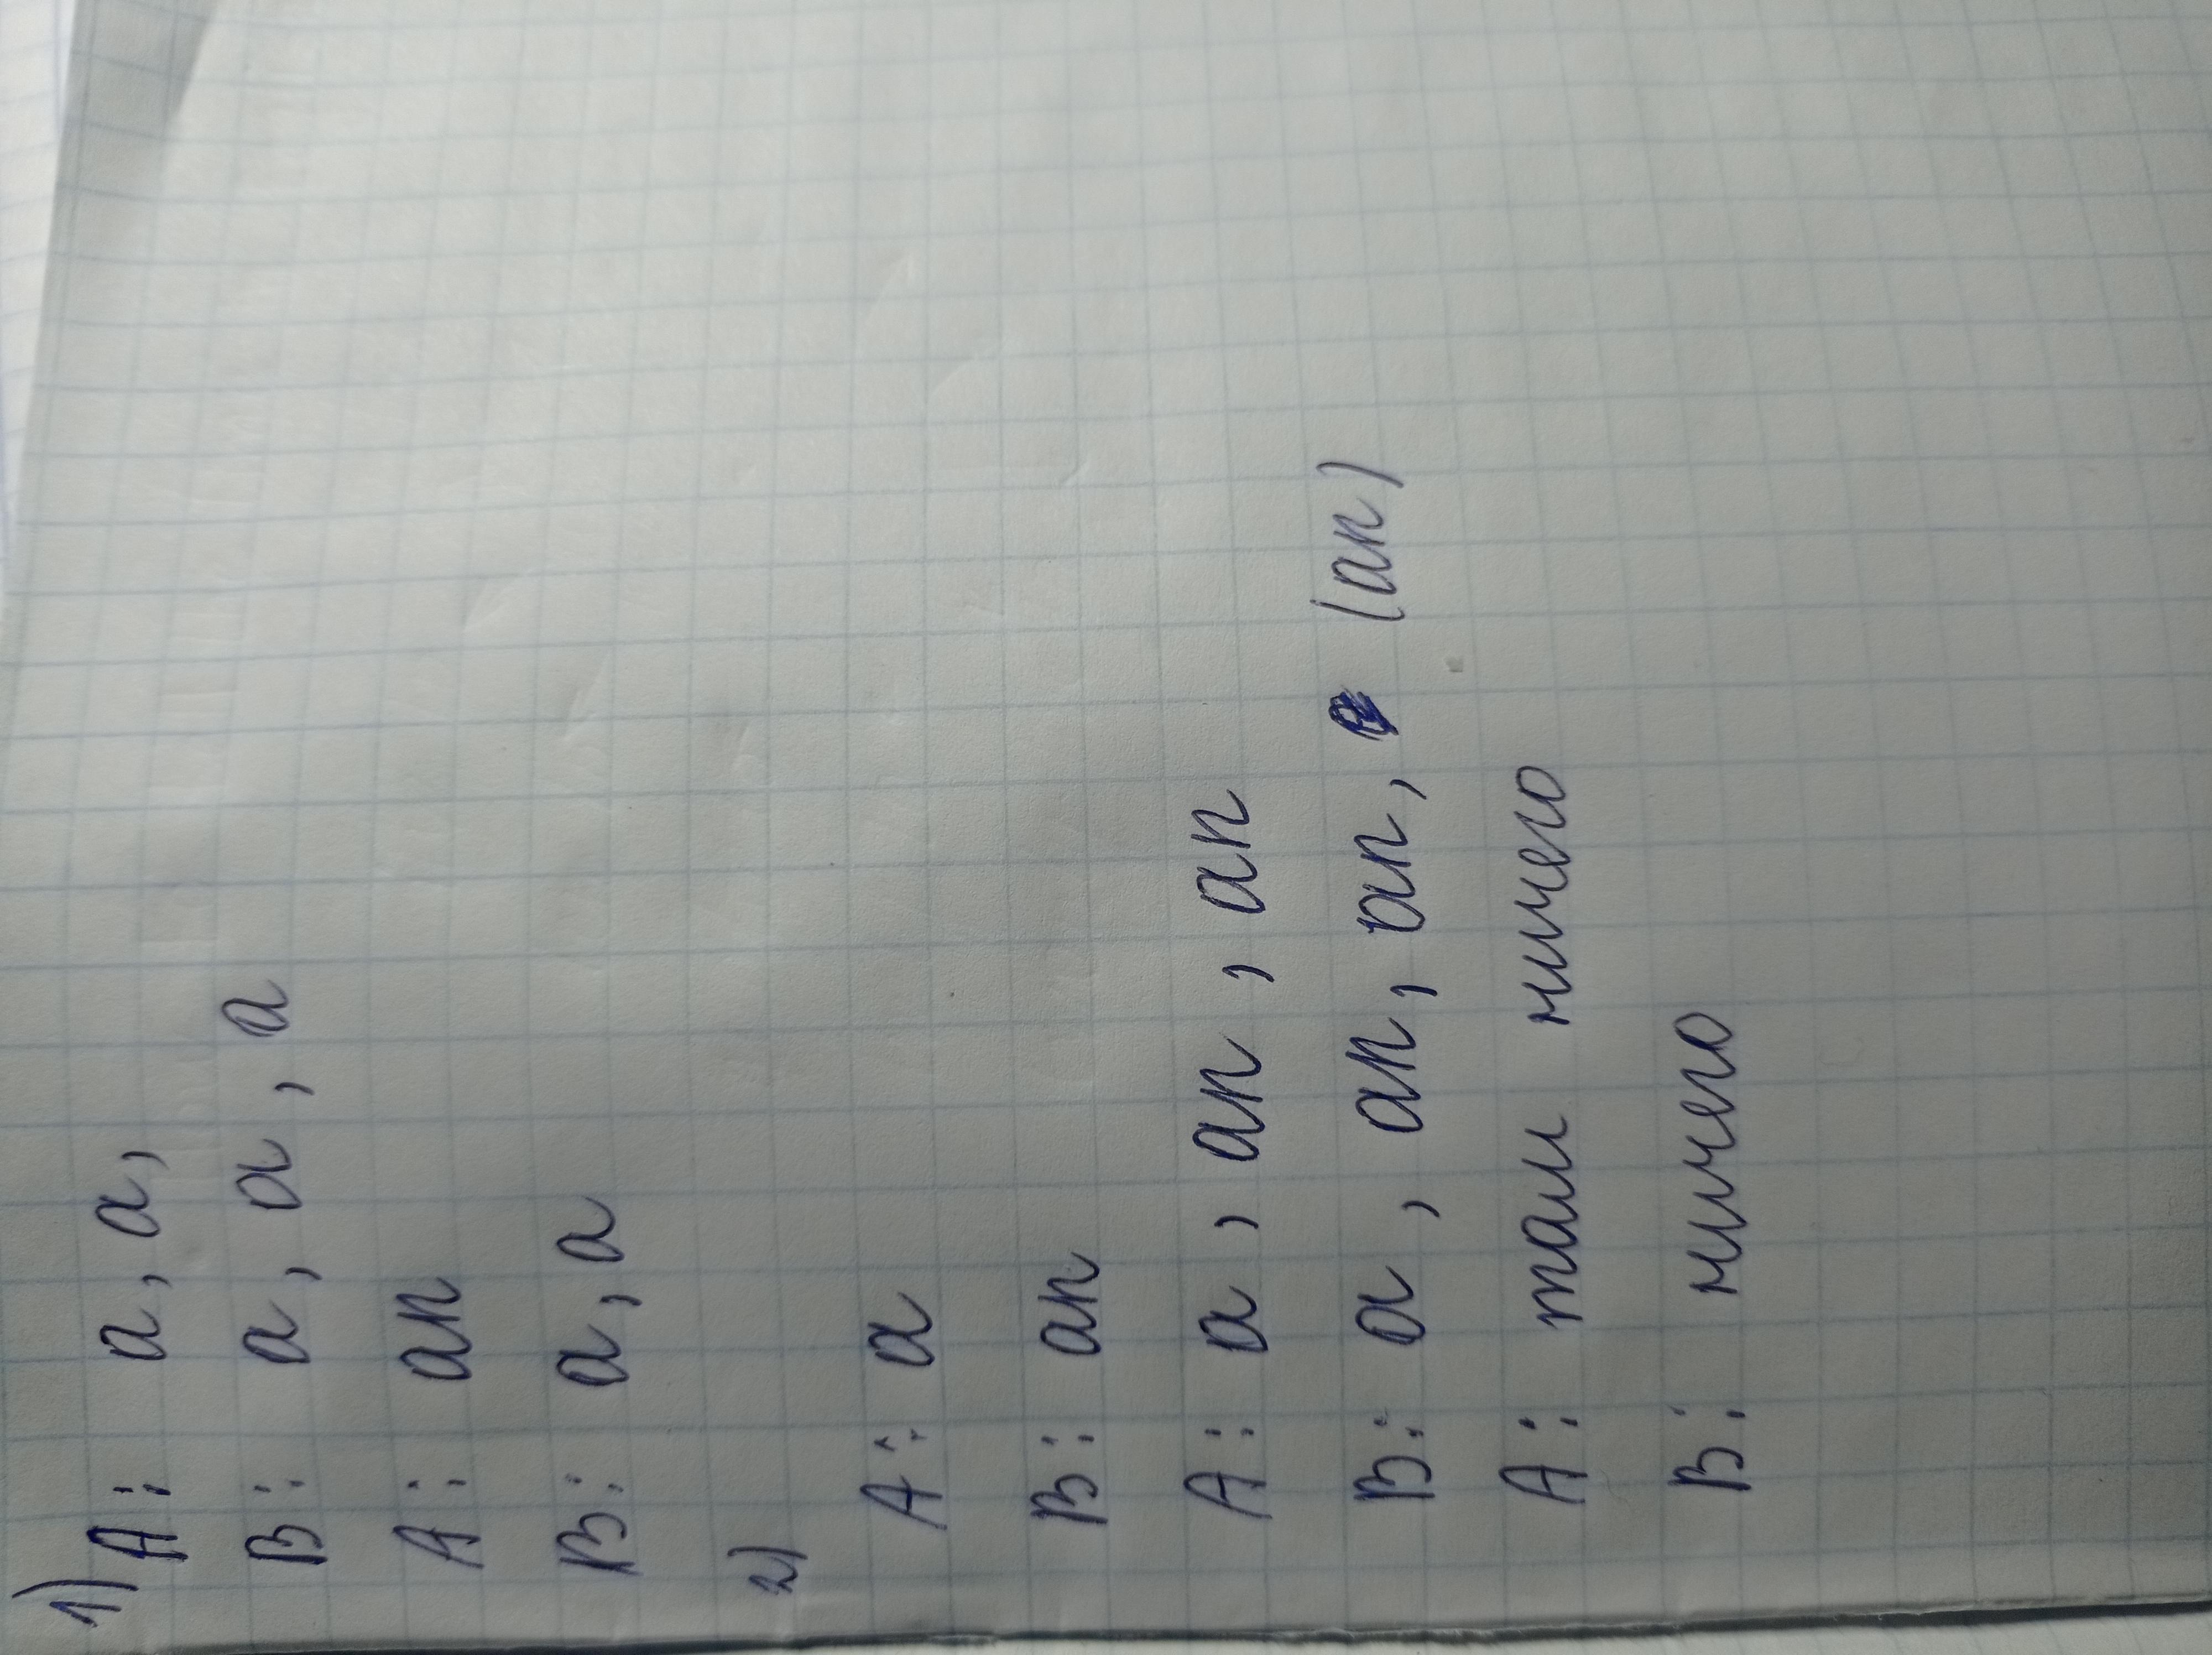 1) A: a, a,
B: a, a, a
A: an
B: a, a
2)
A: a
B: an
A: a, an, an
B: a, an, an, (an)
A: там ничего
B: ничего